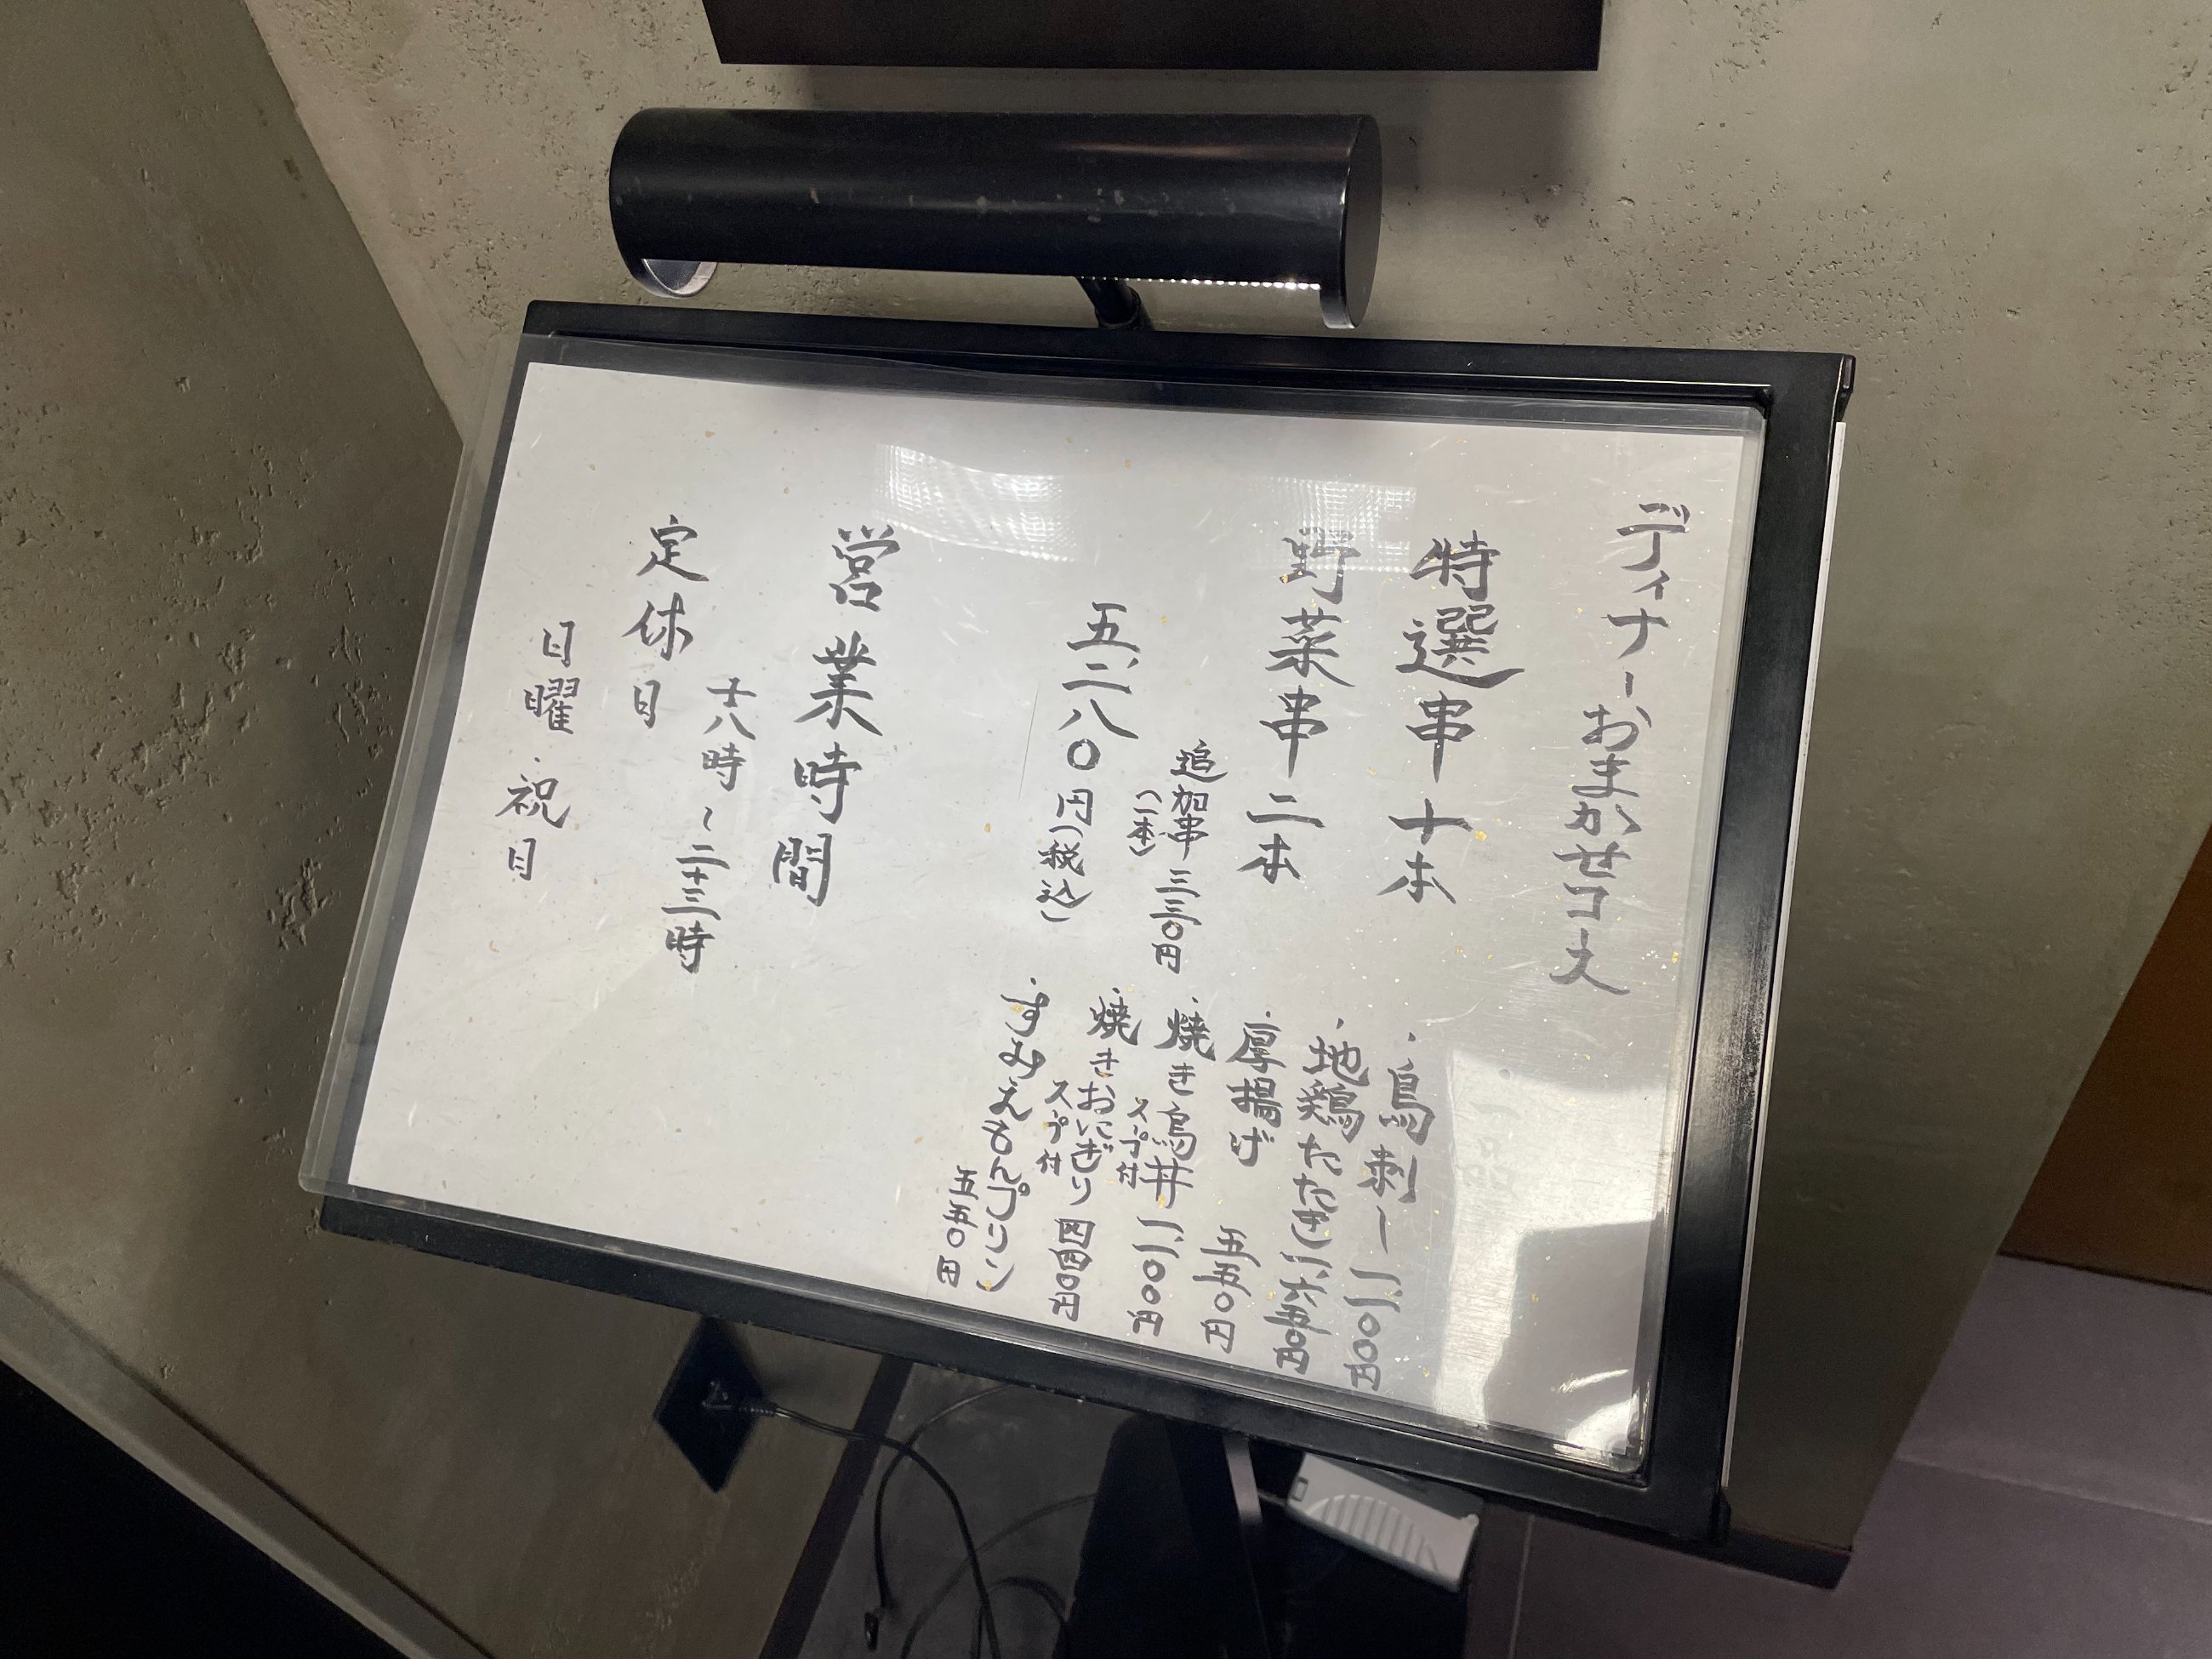 ディナーおまかせコース
特選串 十本
野菜串 二本
追加串 三三〇円
(一本)
五、二八〇円(税込)
・鳥刺し 一、一〇〇円
・地鶏たたき 一、六五〇円
・厚揚げ 五五〇円
・焼き鳥丼 一、一〇〇円
スープ付
・焼きおにぎり 四四〇円
スープ付
・すみえもんプリン
五五〇円
営業時間
十八時〜二十三時
定休日
日曜・祝日